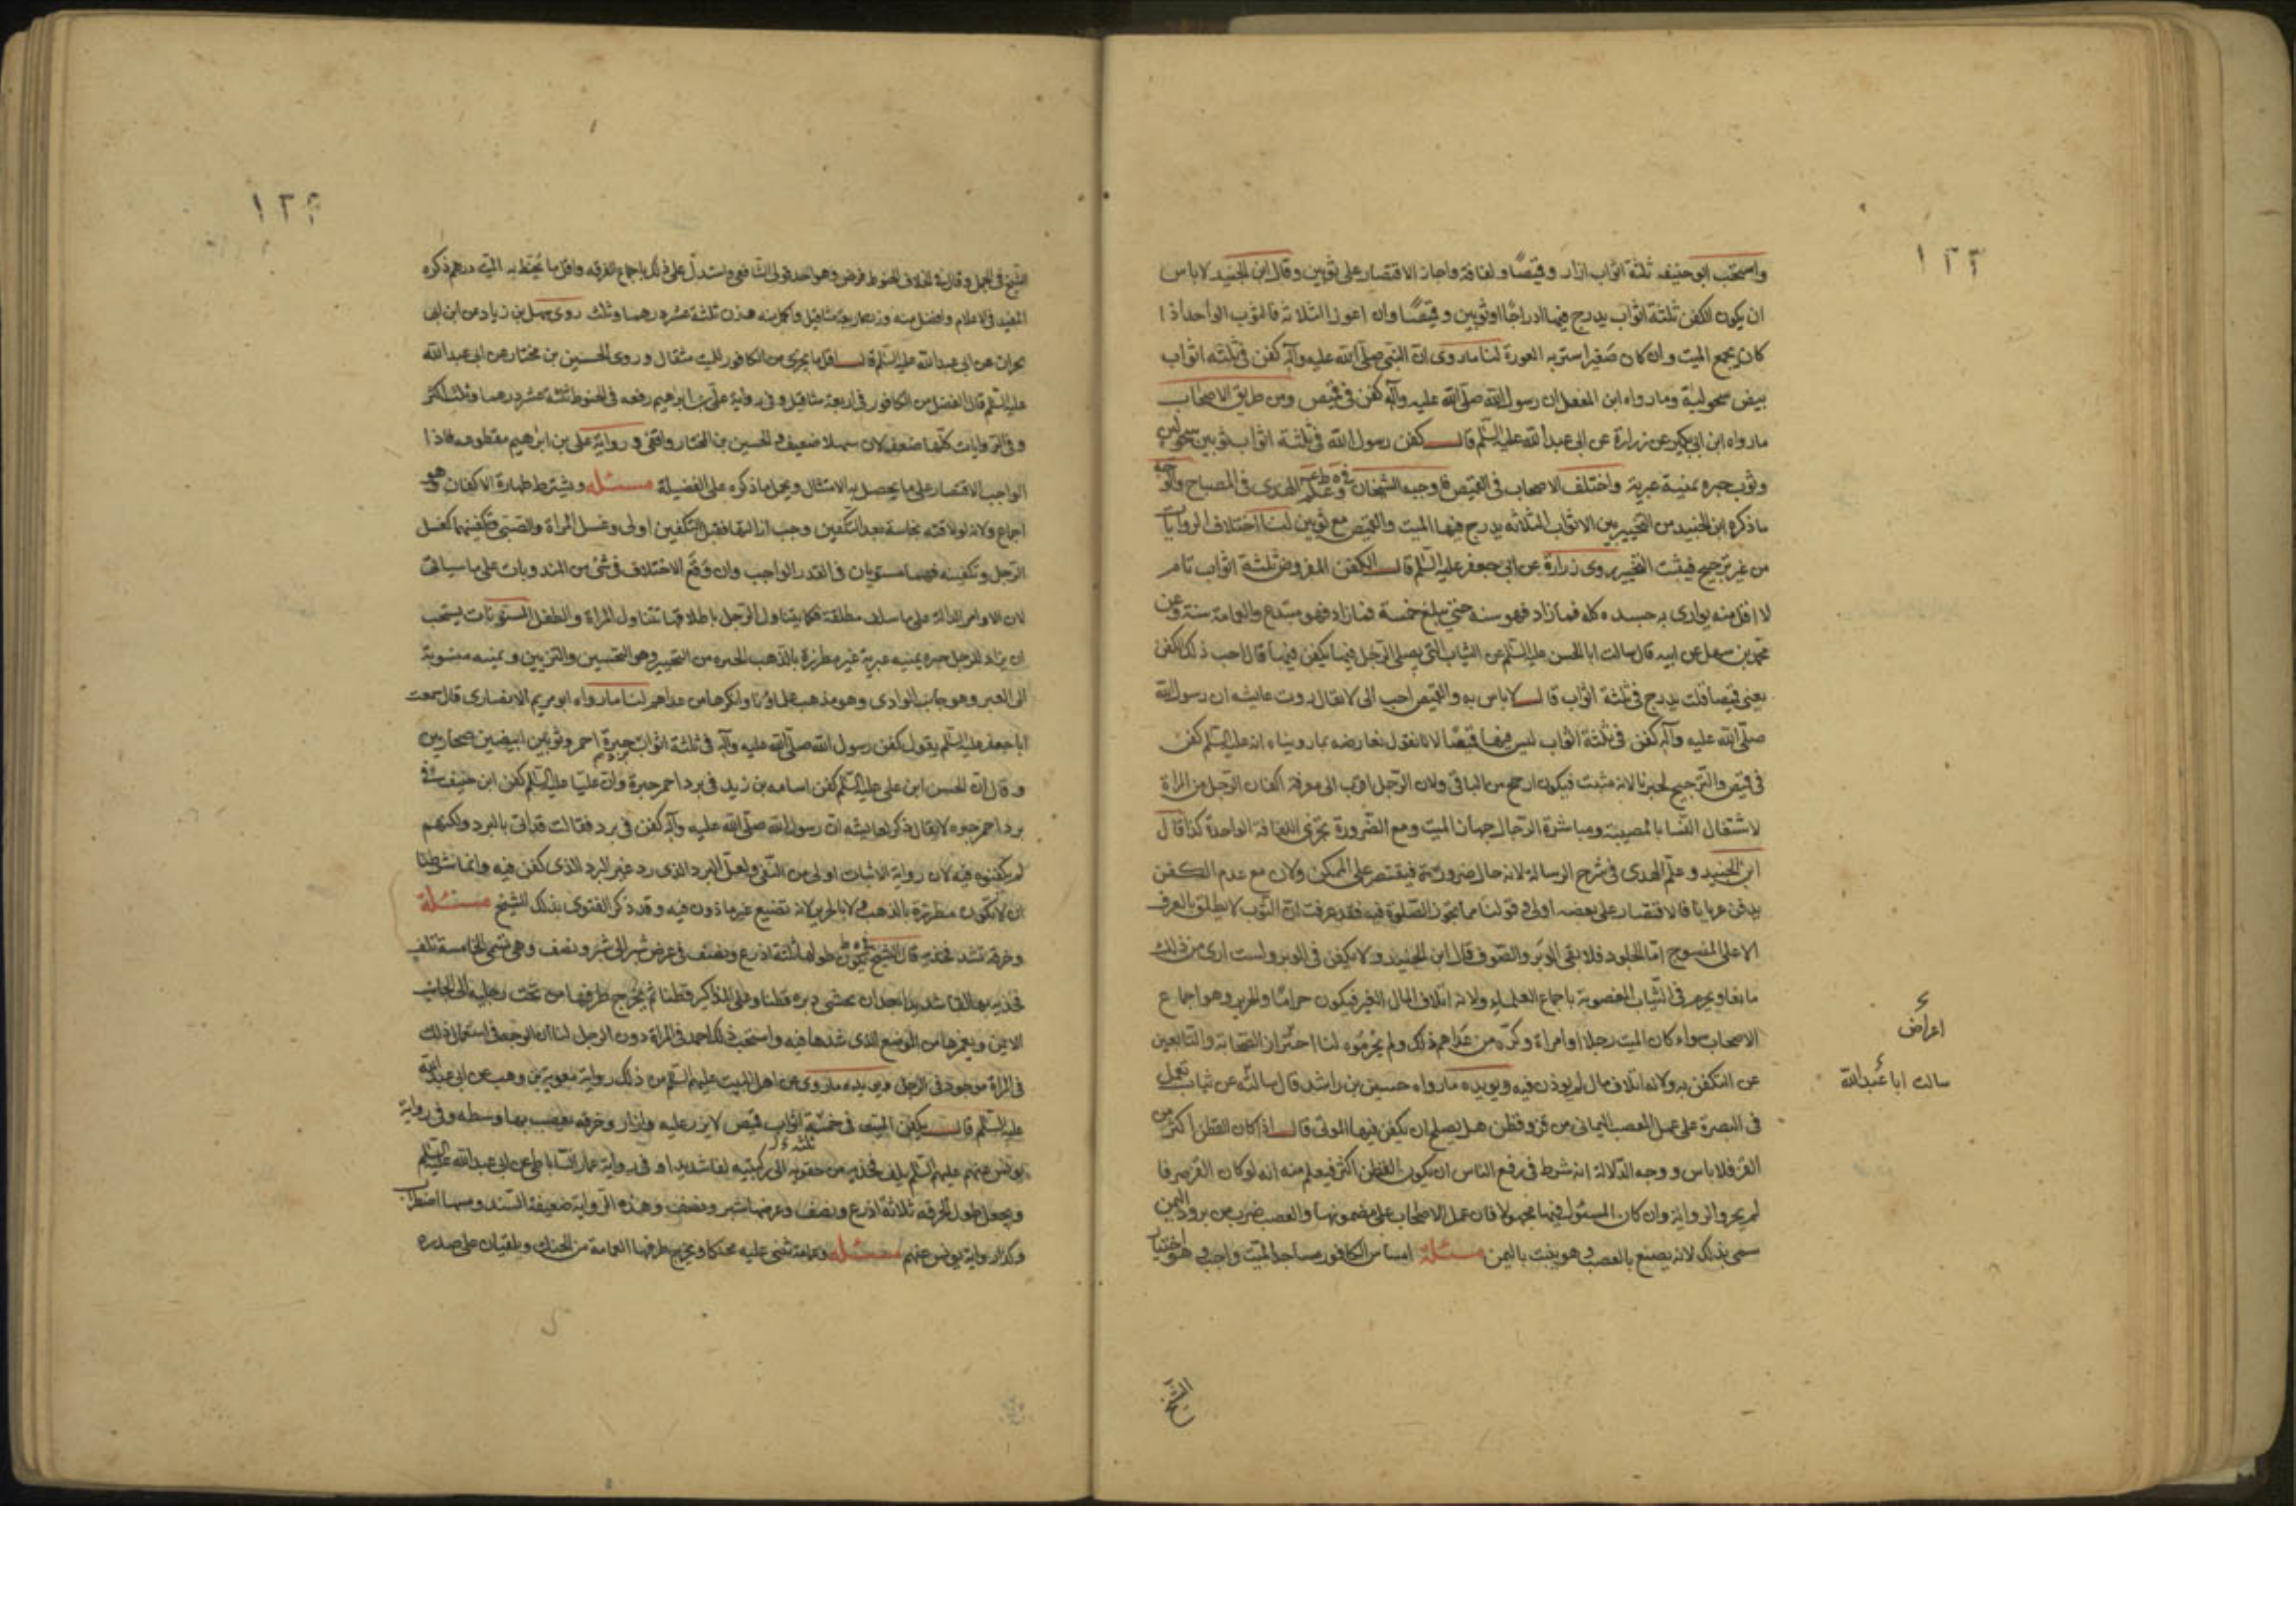 ١٢٣
واستحب ابو حنيفه ثلثة اثواب ازار وقميصًا ولفافة واجاز الاقتصار على ثوبين وقال ابن الجنيد لا باس
ان يكون الكفن ثلثة اثواب يدرج فيها ادراجًا او ثوبين وقميصًا وان اعوز الثلاثة فالثوب الواحد اذا
كان يجمع الميت وان كان صغيرا ستر به العورة لنا ما روى ان النبى صلى الله عليه وآله كفن فى ثلثه اثواب
بيض سحولية وما رواه ابن المغفل ان رسول الله صلى الله عليه وآله كفن فى قميص ومن طريق الاصحاب
ما رواه ابن ابى بكير عن زرارة عن ابى عبد الله عليه السلم قال كفن رسول الله فى ثلثة اثواب ثوبين سحوليين
وثوب حبره يمنية عبرية واختلف الاصحاب فى القميص فاوجبه الشيخان وعلم الهدى فى المصباح والوجه
ما ذكره ابن الجنيد من التخيير بين الاثواب الثلاثه يدرج فيها الميت والقميص مع ثوبين لنا اختلاف الروايات
من غير ترجيح فيثبت التخيير روى زرارة عن ابى جعفر عليه السلم قال الكفن المفروض ثلثة اثواب تام
لا اقل منه يوارى به جسده كله فما زاد فهو سنه حتى يبلغ خمسة فما زاد فهو مبتدع والعمامة سنة وعن
محمد بن سهل عن ابيه قال سالت ابا الحسن عليه السلم عن الثياب التى يصلى الرجل فيها يكفن فيها قال احب ذلك الكفن
يعنى قميصا قلت يدرج فى ثلثة اثواب قال لا باس به والقميص احب الى لا يقال روت عايشه ان رسول الله
صلى الله عليه وآله كفن فى ثلثة اثواب ليس فيها قميصًا لانا نقول نعارضه بما رويناه انه عليه السلم كفن
فى قميص والترجيح لخبرنا لانه مثبت فيكون ارجح من النافى ولان الرجل اقرب الى معرفة اكفان الرجل من المراة
لاشتغال النسا بالمصيبة ومباشرة الرجال جهاز الميت ومع الضرورة يجزى اللفافة الواحدة كذا قال
ابن الجنيد وعلم الهدى فى شرح الرسالة لانه حال ضرورة فيقتصر على الممكن ولان مع عدم الكفن
يدفن عريانا فالاقتصار على بعضه اولى وقولنا مما يجوز الصلوة فيه فقد عرفت ان الثوب لا يطلق بالعرف
الا على المنسوج اما الجلود فلا بقى الوبر والصوف قال ابن الجنيد ولا يكفن فى الوبر ولست ارى من ذلك
مانعا ويحرم فى الثياب المغصوبة باجماع العلماء ولانه اتلاف المال الغير فيكون حرامًا والحرير وهو اجماع
الاصحاب سواء كان الميت رجلا او امراة وكره من عداهم ذلك ولم يحرموه لنا احتراز الصحابة والتابعين
عن التكفن به ولانه اتلاف مال لم يوذن فيه ويويده ما رواه حسين بن راشد قال سالته عن ثياب تعمل
فى البصرة على عمل العصب اليمانى من قز وقطن هل يصلح ان يكفن فيها الموتى قال اذا كان القطن اكثر من
القز فلا باس ووجه الدلالة انه شرط فى رفع الباس ان يكون القطن اكثر فيعلم منه انه لو كان القز صرفا
لم يجز والرواية وان كان المسئول فيها مجهولا فان عمل الاصحاب على مضمونها والعصب ضرب من برود اليمن
سمى بذلك لانه يصنع بالعصب وهو ينبت باليمن مسئلة امساس الكافور مساجد الميت واجب وهو اختيار
اعراض
سالت ابا عبدالله
الشيخ
الشيخ فى الجمل وقال فى الخلاف الحنوط فرض وهو احد قولى الشافعى واستدل على ذلك باجماع الفرقه واقل ما يحنط به الميت درهم ذكره
المفيد فى الاعلام وافضل منه وزن اربعة مثاقيل واكمل منه وزن ثلثة عشر درهما وثلث روى سهل بن زياد عن ابن ابى
نجران عن ابى عبد الله عليه السلم قال اقل ما يجزى من الكافور للميت مثقال وروى الحسين بن مختار عن ابى عبد الله
عليه السلم قال الفضل من الكافور فى اربعة مثاقيل وفى رواية على بن ابراهيم رفعه فى الحنوط ثلثة عشر درهما وثلث اكثر
وفى الروايات كلها ضعف لان سهلا ضعيف والحسين بن المختار واقفى ورواية على بن ابرهيم مقطوعه فاذا
الواجب الاقتصار على ما يحصل به الامتثال ويحمل ما ذكروه على الفضيلة مسئله ويشترط طهارة الاكفان وهو
اجماع ولانه لو لاقته نجاسة بعد التكفين وجب ازالتها فقبل التكفين اولى وغسل المراة والصبى وتكفينهما كغسل
الرجل وتكفينه فهما مستويان فى القدر الواجب وان وقع الاختلاف فى شى من المندوبات على ما سياتى
لان الاوامر الدالة على ما سلف مطلقة فكما يتناول الرجل باطلاقها تتناول المراة والطفل المسنونات يستحب
ان يزاد للرجل حبره يمنيه عبرية غير مطرزة بالذهب الحبره من التحبير وهو التحسين والتزيين ويمنيه منسوبة
الى العبر وهو جانب الوادى وهو مذهب علماؤنا وانكرها من عداهم لنا ما رواه ابو مريم الانصارى قال سمعت
ابا جعفر عليه السلم يقول كفن رسول الله صلى الله عليه وآله فى ثلثة اثواب حبرة احمر وثوبين ابيضين صحاريين
وقال ان الحسن ابن على عليه السلم كفن اسامه بن زيد فى برد احمر حبرة وان عليا عليه السلم كفن ابن حنيف فى
برد احمر حبره لا يقال ذكر لعايشه ان رسول الله صلى الله عليه وآله كفن فى برد فقالت قد اتى بالبرد ولكنهم
لم يكفنوه فيه لان رواية الاثبات اولى من النفى ولعل البرد الذى رد غير البرد الذى كفن فيه وانما شرطنا
ان لا يكون مطرزة بالذهب ولا بالحرير لانه تضييع غير ماذون فيه وقد ذكر الفتوى بذلك الشيخ مسئلة
وخرقه تشد فخذيه قال الشيخ يكون طولها ثلثة اذرع ونصف فى عرض شبر الى شبر ونصف وهى تسمى الخامسة تلف
فخذيه بها لفا شديدا بعد ان يحشى دبره قطنا وعلى المذاكير قطنا ثم يخرج طرفها من تحت رجليه الى الجانب
الايمن ويغمزها من الموضع الذى شدها فيه واستحب ذلك احمد فى المراة دون الرجل لنا ان الوجه فى استعمال ذلك
فى المراة موجود فى الرجل ويويده ما روى عن اهل البيت عليهم السلم من ذلك رواية معوية بن وهب عن ابى عبد الله
عليه السلم قال يكفن الميت فى خمسة اثواب قميص لا يزر عليه وازار وخرقه يعصب بها وسطه وفى رواية
يونس عنهم عليهم السلم يلف فخذيه من حقويه الى ركبتيه لفا شديدا وفى رواية عمار الساباطى عن ابى عبد الله عليه السلم
ويجعل طول الخرقه ثلاثة اذرع ونصف وعرضها شبر ونصف وهذه الرواية ضعيفة السند ومسها اضطراب
وكذا رواية يونس عنهم مسئله وعمامة تثنى عليه محنكا ويخرج طرفيها العمامة من الحنك ويلقيان على صدره